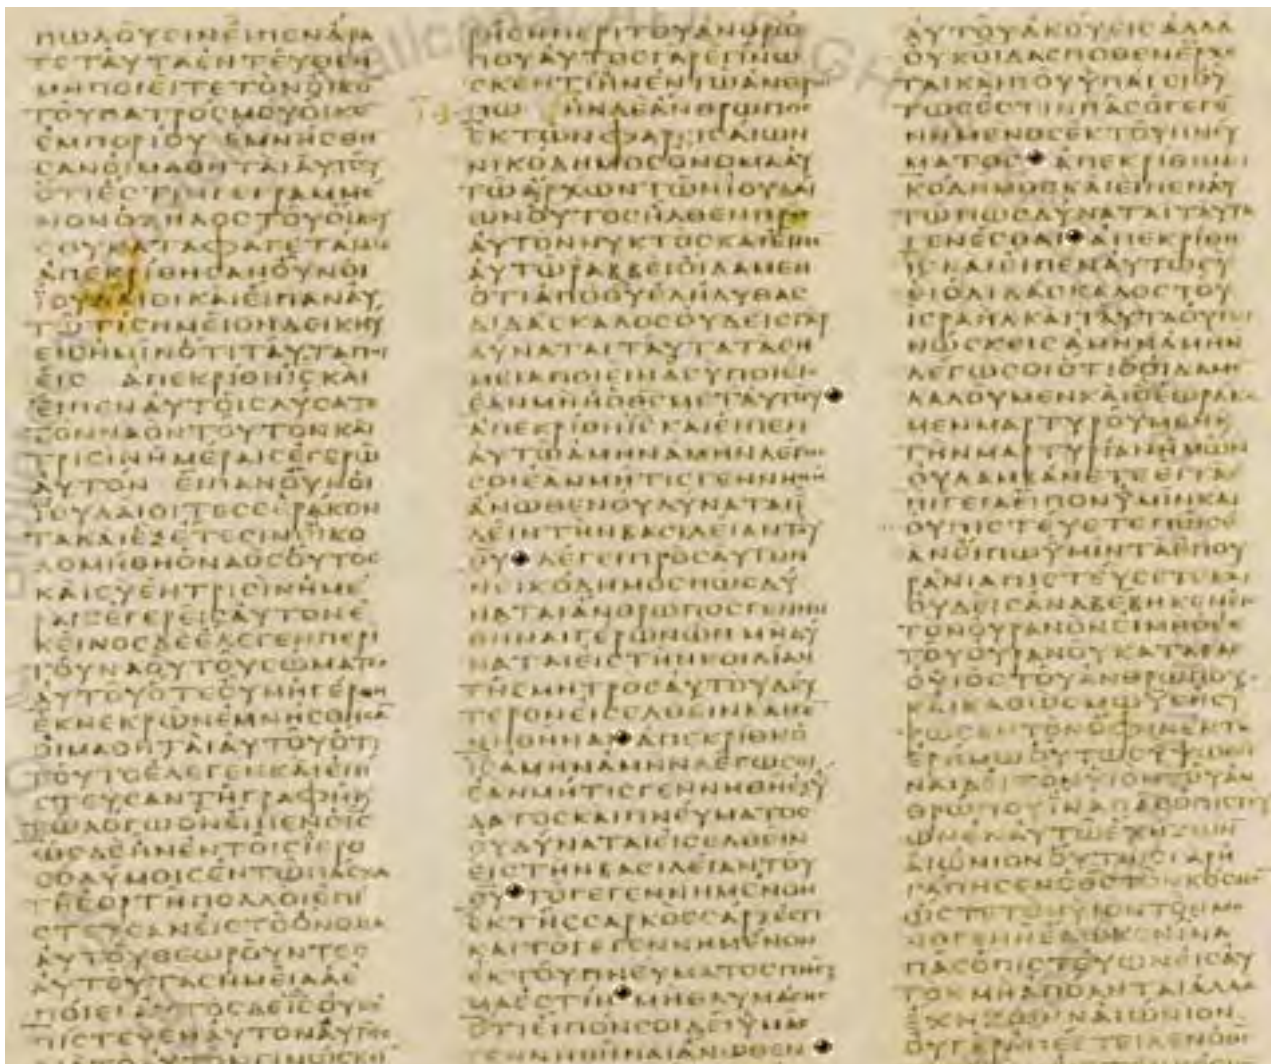 ΠΩΛΟΥϹΙΝΕΙΠΕΝΑΡΑ
ΤΕΤΑΥΤΑΕΝΤΕΥΘΕΝ
ΜΗΠΟΙΕΙΤΕΤΟΝΟΙΚΟ
ΤΟΥΠΑΤΡΟϹΜΟΥΟΙΚΟ
ΕΜΠΟΡΙΟΥ ΕΜΝΗϹΘΗ
ϹΑΝΟΙΜΑΘΗΤΑΙΑΥΤΟΥ
ΟΤΙΕϹΤΙΝΓΕΓΡΑΜΜΕ
ΝΟΝΟΖΗΛΟϹΤΟΥΟΙΚΟΥ
ϹΟΥΚΑΤΑΦΑΓΕΤΑΙΜΕ
ΑΠΕΚΡΙΘΗϹΑΝΟΥΝΟΙ
ΙΟΥΔΑΙΟΙΚΑΙΕΙΠΑΝΑΥ
ΤΩΤΙϹΗΜΕΙΟΝΔΕΙΚΝΥ
ΕΙϹΗΜΙΝΟΤΙΤΑΥΤΑΠΟΙ
ΕΙϹ ΑΠΕΚΡΙΘΗΙϹΚΑΙ
ΕΙΠΕΝΑΥΤΟΙϹΛΥϹΑΤΕ
ΤΟΝΝΑΟΝΤΟΥΤΟΝΚΑΙ
ΤΡΙϹΙΝΗΜΕΡΑΙϹΕΓΕΡΩ
ΑΥΤΟΝ ΕΙΠΑΝΟΥΝΟΙ
ΙΟΥΔΑΙΟΙΤΕϹϹΕΡΑΚΟΝ
ΤΑΚΑΙΕΞΕΤΕϹΙΝΟΙΚΟ
ΔΟΜΗΘΗΟΝΑΟϹΟΥΤΟϹ
ΚΑΙϹΥΕΝΤΡΙϹΙΝΗΜΕ
ΡΑΙϹΕΓΕΡΕΙϹΑΥΤΟΝΕ
ΚΕΙΝΟϹΔΕΕΛΕΓΕΝΠΕΡΙ
ΤΟΥΝΑΟΥΤΟΥϹΩΜΑΤΟϹ
ΑΥΤΟΥΟΤΕΟΥΝΗΓΕΡΘΗ
ΕΚΝΕΚΡΩΝΕΜΝΗϹΘΗϹΑ
ΟΙΜΑΘΗΤΑΙΑΥΤΟΥΟΤΙ
ΤΟΥΤΟΕΛΕΓΕΝΚΑΙΕΠΙ
ϹΤΕΥϹΑΝΤΗΓΡΑΦΗΚ
ΤΩΛΟΓΩΟΝΕΙΠΕΝΟΙϹ
ΩϹΔΕΗΝΕΝΤΟΙϹΙΕΡΟ
ϹΟΛΥΜΟΙϹΕΝΤΩΠΑϹΧΑ
ΤΗΕΟΡΤΗΠΟΛΛΟΙΕΠΙ
ϹΤΕΥϹΑΝΕΙϹΤΟΟΝΟΜΑ
ΑΥΤΟΥΘΕΩΡΟΥΝΤΕϹ
ΑΥΤΟΥΤΑϹΗΜΕΙΑΑΕ
ΠΟΙΕΙΑΥΤΟϹΔΕΙϹΟΥΚΕ
ΠΙϹΤΕΥΕΝΑΥΤΟΝΑΥΤΟΙϹ
ΡΗϹΗΠΕΡΙΤΟΥΑΝΘΡΩ
ΠΟΥΑΥΤΟϹΓΑΡΕΓΙΝΩ
ϹΚΕΝΤΙΗΝΕΝΤΩΑΝΘΡΩ
ΠΩ ΗΝΔΕΑΝΘΡΩΠΟϹ
ΕΚΤΩΝΦΑΡΙϹΑΙΩΝ
ΝΙΚΟΔΗΜΟϹΟΝΟΜΑΑΥ
ΤΩΑΡΧΩΝΤΩΝΙΟΥΔΑΙ
ΩΝΟΥΤΟϹΗΛΘΕΝΠΡΟϹ
ΑΥΤΟΝΝΥΚΤΟϹΚΑΙΕΙΠΕ
ΑΥΤΩΡΑΒΒΕΙΟΙΔΑΜΕΝ
ΟΤΙΑΠΟΘΥΕΛΗΛΥΘΑϹ
ΔΙΔΑϹΚΑΛΟϹΟΥΔΕΙϹΓΑΡ
ΔΥΝΑΤΑΙΤΑΥΤΑΤΑϹΗ
ΜΕΙΑΠΟΙΕΙΝΑϹΥΠΟΙΕΙϹ
ΕΑΝΜΗΗΟΘϹΜΕΤΑΥΤΟΥ
ΑΠΕΚΡΙΘΗΙϹΚΑΙΕΙΠΕΝ
ΑΥΤΩΑΜΗΝΑΜΗΝΛΕΓΩ
ϹΟΙΕΑΝΜΗΤΙϹΓΕΝΝΗΘΗ
ΑΝΩΘΕΝΟΥΔΥΝΑΤΑΙΙ
ΔΕΙΝΤΗΝΒΑϹΙΛΕΙΑΝΤΟΥ
ΘΥ ΛΕΓΕΙΠΡΟϹΑΥΤΟΝ
ΝΕΙΚΟΔΗΜΟϹΠΩϹΔΥ
ΝΑΤΑΙΑΝΘΡΩΠΟϹΓΕΝΝΗ
ΘΗΝΑΙΓΕΡΩΝΩΝΜΗΔΥ
ΝΑΤΑΙΕΙϹΤΗΝΚΟΙΛΙΑΝ
ΤΗϹΜΗΤΡΟϹΑΥΤΟΥΔΕΥ
ΤΕΡΟΝΕΙϹΕΛΘΕΙΝΚΑΙΓΕ
ΝΝΗΘΗΝΑΙ ΑΠΕΚΡΙΘΗΟ
ΙϹΑΜΗΝΑΜΗΝΛΕΓΩϹΟΙ
ΕΑΝΜΗΤΙϹΓΕΝΝΗΘΗΕΞΥ
ΔΑΤΟϹΚΑΙΠΝΕΥΜΑΤΟϹ
ΟΥΔΥΝΑΤΑΙΕΙϹΕΛΘΕΙΝ
ΕΙϹΤΗΝΒΑϹΙΛΕΙΑΝΤΟΥ
ΘΥ ΤΟΓΕΓΕΝΝΗΜΕΝΟΝ
ΕΚΤΗϹϹΑΡΚΟϹϹΑΡΞΕϹΤΙ
ΚΑΙΤΟΓΕΓΕΝΝΗΜΕΝΟΝ
ΕΚΤΟΥΠΝΕΥΜΑΤΟϹΠΝΕΥ
ΜΑΕϹΤΙΝ ΜΗΘΑΥΜΑϹΗϹ
ΟΤΙΕΙΠΟΝϹΟΙΔΕΙΥΜΑϹ
ΓΕΝΝΗΘΗΝΑΙΑΝΩΘΕΝ
ΑΥΤΟΥΑΚΟΥΕΙϹΑΛΛΑ
ΟΥΚΟΙΔΑϹΠΟΘΕΝΕΡΧΕ
ΤΑΙΚΑΙΠΟΥΥΠΑΓΕΙΟΥ
ΤΩϹΕϹΤΙΝΠΑϹΟΓΕΓΕ
ΝΝΗΜΕΝΟϹΕΚΤΟΥΠΝΕΥ
ΜΑΤΟϹ ΑΠΕΚΡΙΘΗΝΙ
ΚΟΔΗΜΟϹΚΑΙΕΙΠΕΝΑΥ
ΤΩΠΩϹΔΥΝΑΤΑΙΤΑΥΤΑ
ΓΕΝΕϹΘΑΙ ΑΠΕΚΡΙΘΗ
ΙϹΚΑΙΕΙΠΕΝΑΥΤΩϹΥ
ΕΙΟΔΙΔΑϹΚΑΛΟϹΤΟΥ
ΙϹΡΑΗΛΚΑΙΤΑΥΤΑΟΥΓΙ
ΝΩϹΚΕΙϹΑΜΗΝΑΜΗΝ
ΛΕΓΩϹΟΙΟΤΙΟΟΙΔΑΜΕ
ΛΑΛΟΥΜΕΝΚΑΙΟΕΩΡΑΚΑ
ΜΕΝΜΑΡΤΥΡΟΥΜΕΝΚ
ΤΗΝΜΑΡΤΥΡΙΑΝΗΜΩΝ
ΟΥΛΑΜΒΑΝΕΤΕΕΙΤΑΕ
ΠΙΓΕΙΑΕΙΠΟΝΥΜΙΝΚΑΙ
ΟΥΠΙϹΤΕΥΕΤΕΠΩϹΕ
ΑΝΕΙΠΩΥΜΙΝΤΑΕΠΟΥ
ΡΑΝΙΑΠΙϹΤΕΥϹΕΤΕΚΑΙ
ΟΥΔΕΙϹΑΝΑΒΕΒΗΚΕΝΕΙϹ
ΤΟΝΟΥΡΑΝΟΝΕΙΜΗΟΕΚ
ΤΟΥΟΥΡΑΝΟΥΚΑΤΑΒΑϹ
ΟΥΙΟϹΤΟΥΑΝΘΡΩΠΟΥ
ΚΑΙΚΑΘΩϹΜΩΥϹΗϹΥ
ΨΩϹΕΝΤΟΝΟΦΙΝΕΝΤΗ
ΕΡΗΜΩΟΥΤΩϹΥΨΩΘΗ
ΝΑΙΔΕΙΤΟΝΥΙΟΝΤΟΥΑΝ
ΘΡΩΠΟΥΙΝΑΠΑϹΟΠΙϹΤΕΥ
ΩΝΕΝΑΥΤΩΕΧΗΖΩΗΝ
ΑΙΩΝΙΟΝΟΥΤΩϹΓΑΡΗ
ΓΑΠΗϹΕΝΟΘϹΤΟΝΚΟϹΜΟ
ΩϹΤΕΤΟΝΥΙΟΝΤΟΝΜΟ
ΝΟΓΕΝΗΕΔΩΚΕΝΙΝΑ
ΠΑϹΟΠΙϹΤΕΥΩΝΕΙϹΑΥ
ΤΟΝΜΗΑΠΟΛΗΤΑΙΑΛΛΑ
ΕΧΗΖΩΗΝΑΙΩΝΙΟΝ
ΟΥΓΑΡΑΠΕϹΤΕΙΛΕΝΟΘϹ